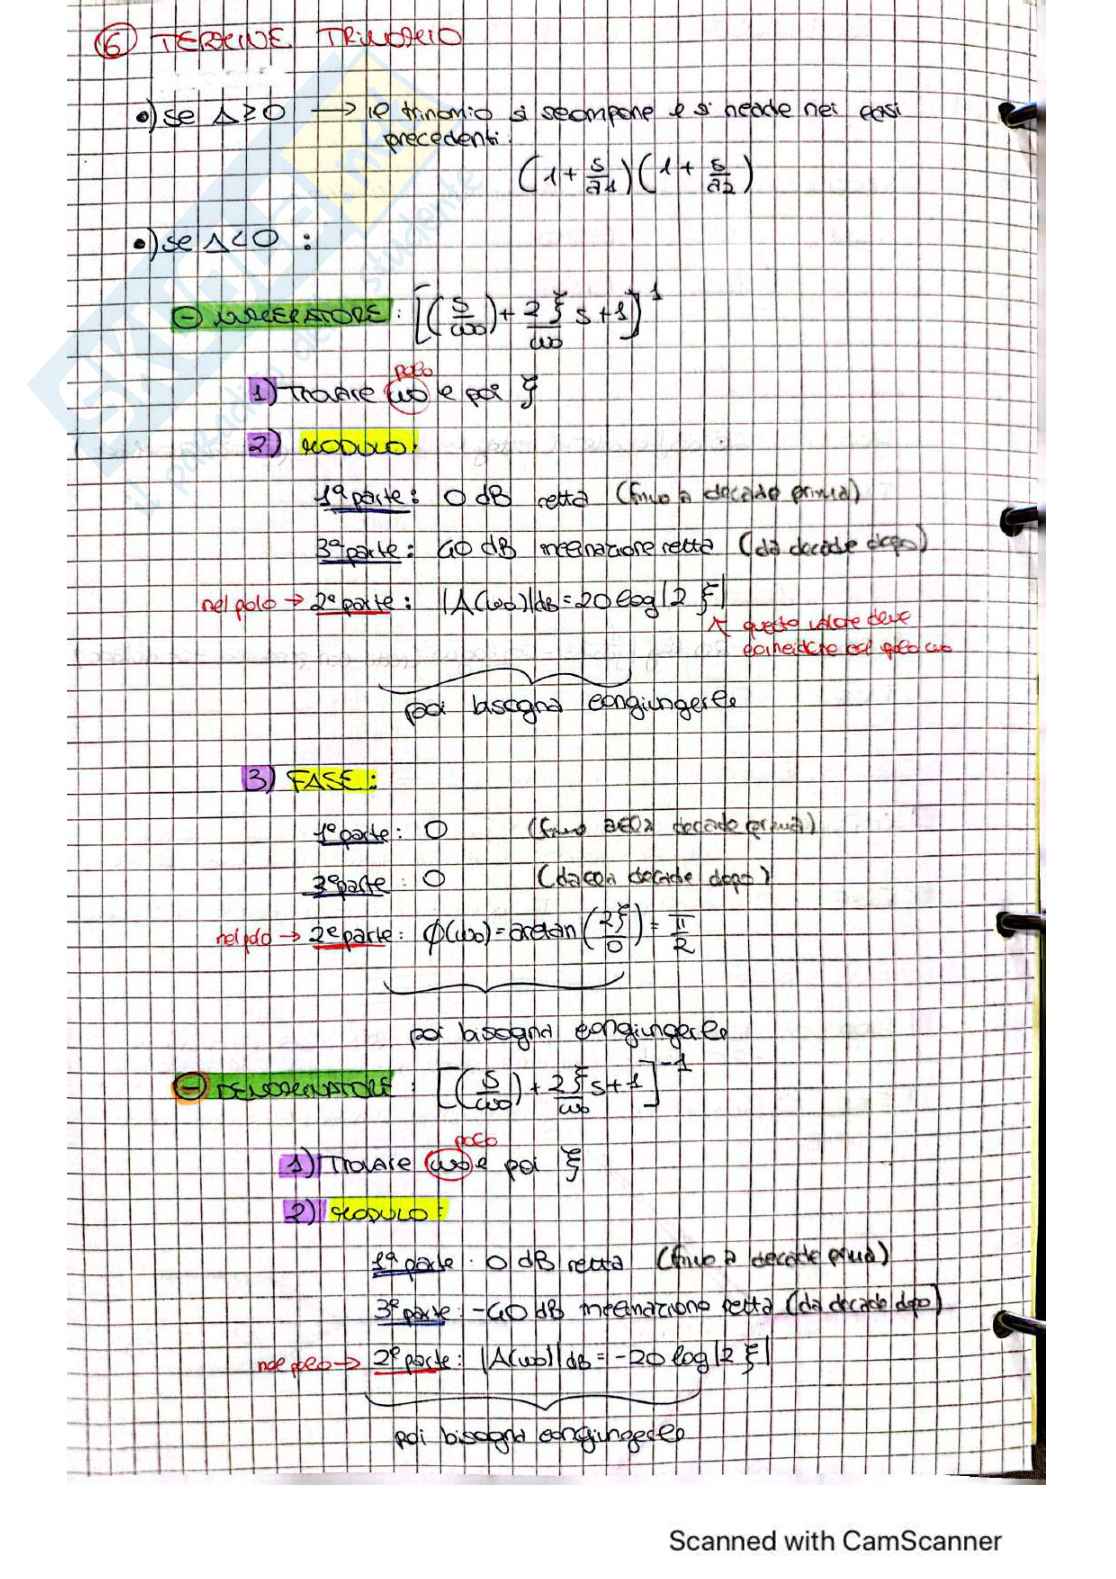 6 TERMINE TRINOMIO
•) se Δ ≥ 0 → il trinomio si scompone e si ricade nei casi
precedenti.
(1 + s/a1)(1 + s/a2)
•) se Δ < 0 :
- NUMERATORE : [(s/ω0) + 2ξ/ω0 s + 1]^1
polo
1) Trovare ω0 e poi ξ
2) MODULO:
1ª parte: 0 dB retta (fino a decade prima)
3ª parte: 40 dB inclinazione retta (da decade dopo)
nel polo → 2ª parte: |A(ω0)|dB = 20 log|2ξ|
↖ questo valore deve
coincidere col polo ω0
poi bisogna congiungerle
3) FASE:
1ª parte: 0 (fino decade prima)
3ª parte: 0 (da decade dopo)
nel polo → 2ª parte: ϕ(ω0) = arctan(2ξ/0) = π/2
poi bisogna congiungerle
- DENOMINATORE : [(s/ω0) + 2ξ/ω0 s + 1]^-1
polo
1) Trovare ω0 e poi ξ
2) MODULO:
1ª parte: 0 dB retta (fino a decade prima)
3ª parte: -40 dB inclinazione retta (da decade dopo)
nel polo → 2ª parte: |A(ω0)|dB = -20 log|2ξ|
poi bisogna congiungerle
Scanned with CamScanner